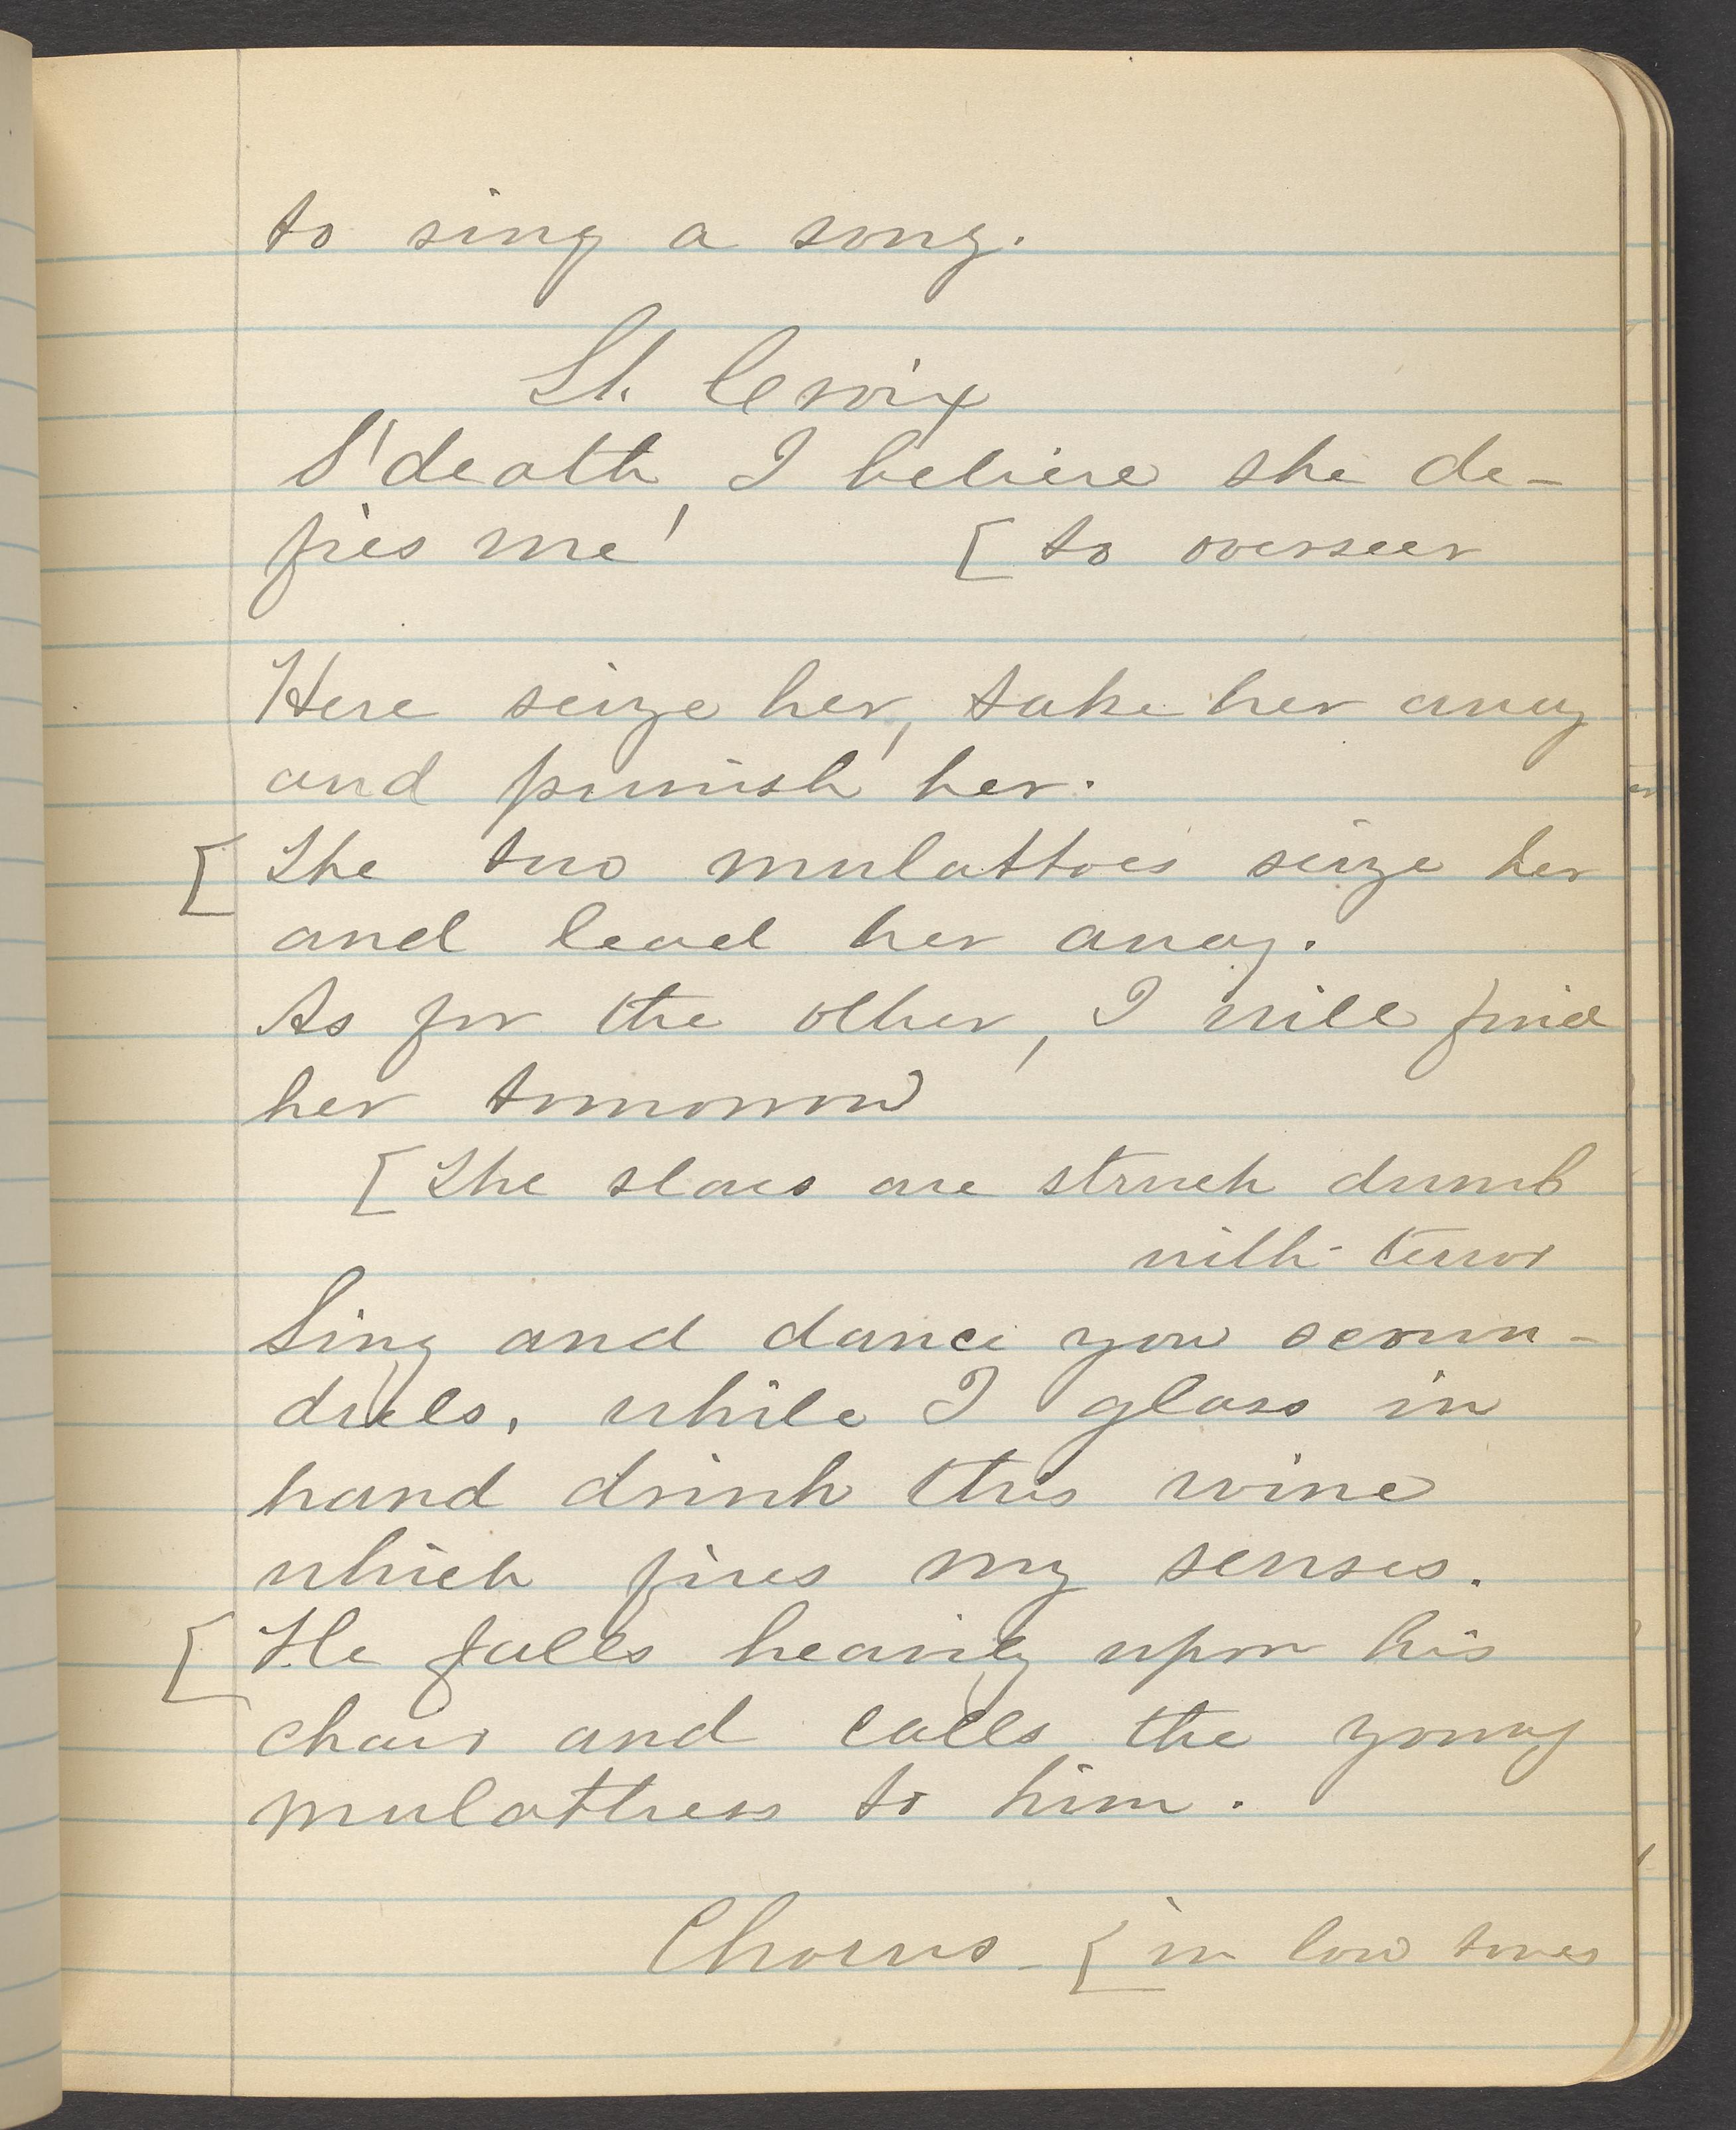 to sing a song.
St. Croix
S'death, I believe she de-
fies me! [to overseer
Here seize her, take her away
and punish her.
[The two mulattoes seize her
and lead her away.
As for the other, I will find
her tomorrow
[The slaves are struck dumb
with terror
Sing and dance you scoun-
drels, while I glass in
hand drink this wine
which fires my senses.
[He falls heavily upon his
chair and calls the young
mulattress to him.
Chorus - [in low tones